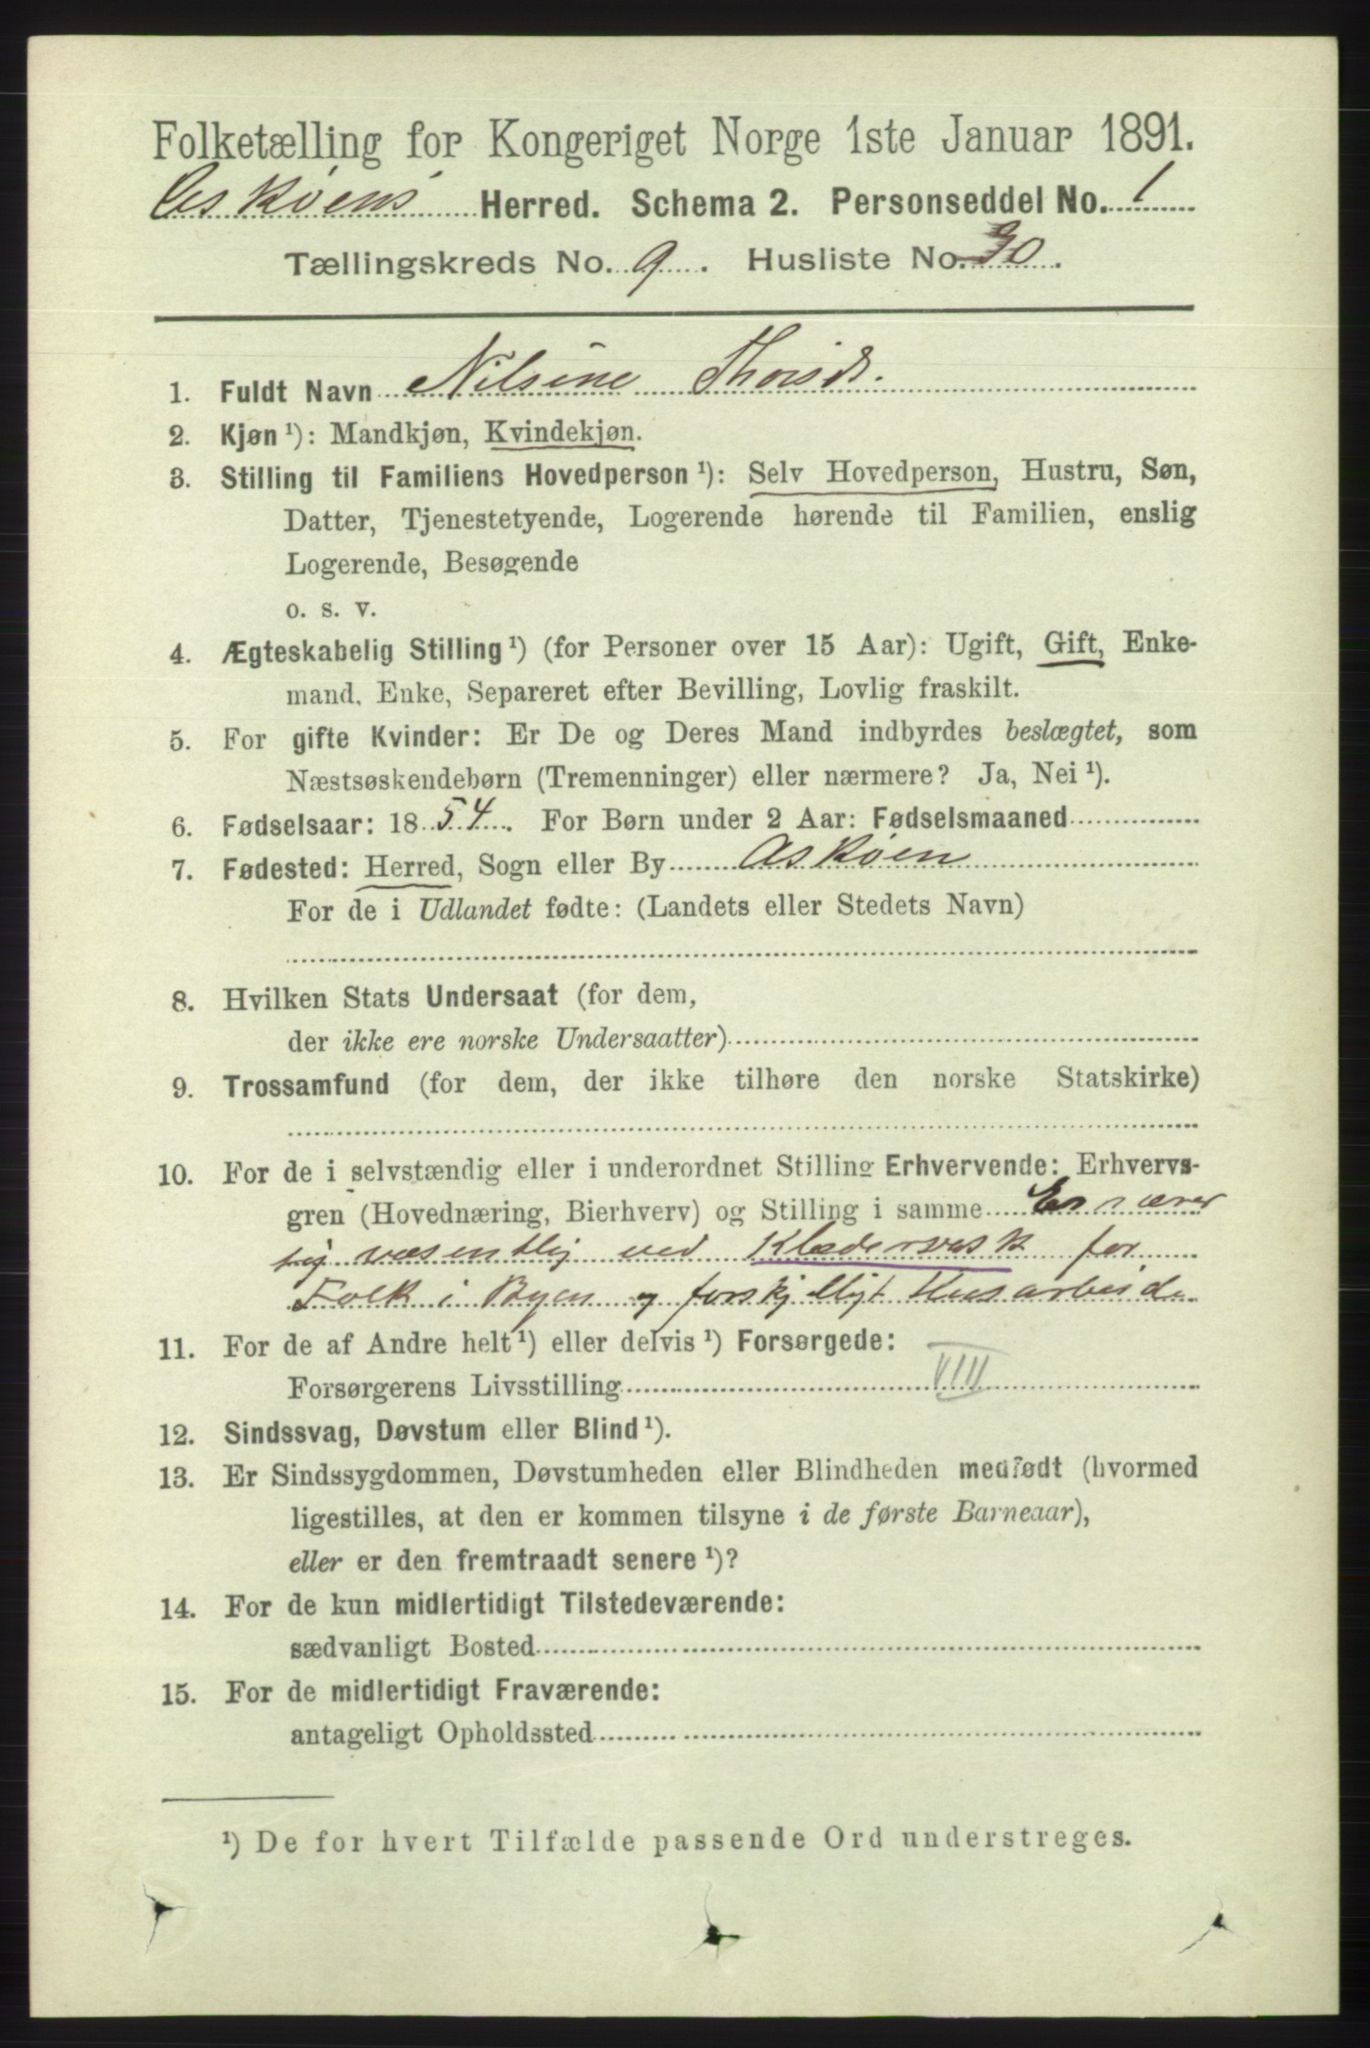 Folketælling for Kongeriget Norge 1ste Januar 1891.
Askøens Herred. Schema 2. Personseddel No. 1
Tællingskreds No. 9. Husliste No. 30.
1. Fuldt Navn Nilsine Thoisd.
2. Kjøn ¹): Mandkjøn, Kvindekjøn.
3. Stilling til Familiens Hovedperson ¹): Selv Hovedperson, Hustru, Søn,
Datter, Tjenestetyende, Logerende hørende til Familien, enslig
Logerende, Besøgende
o. s. v.
4. Ægteskabelig Stilling ¹) (for Personer over 15 Aar): Ugift, Gift, Enke-
mand, Enke, Separeret efter Bevilling, Lovlig fraskilt.
5. For gifte Kvinder: Er De og Deres Mand indbyrdes beslægtet, som
Næstsøskendebørn (Tremenninger) eller nærmere? Ja, Nei ¹).
6. Fødselsaar: 1854. For Børn under 2 Aar: Fødselsmaaned
7. Fødested: Herred, Sogn eller By Askøen
For de i Udlandet fødte: (Landets eller Stedets Navn)
8. Hvilken Stats Undersaat (for dem,
der ikke ere norske Undersaatter)
9. Trossamfund (for dem, der ikke tilhøre den norske Statskirke)
10. For de i selvstændig eller i underordnet Stilling Erhvervende: Erhvervs-
gren (Hovednæring, Bierhverv) og Stilling i samme Ernærer
sig væsentlig ved Klædervask for
Folk i Byen og forskjelligt Husarbeide
11. For de af Andre helt ¹) eller delvis ¹) Forsørgede:
Forsørgerens Livsstilling VIII
12. Sindssvag, Døvstum eller Blind ¹).
13. Er Sindssygdommen, Døvstumheden eller Blindheden medfødt (hvormed
ligestilles, at den er kommen tilsyne i de første Barneaar),
eller er den fremtraadt senere ¹)?
14. For de kun midlertidigt Tilstedeværende:
sædvanligt Bosted
15. For de midlertidigt Fraværende:
antageligt Opholdssted
¹) De for hvert Tilfælde passende Ord understreges.